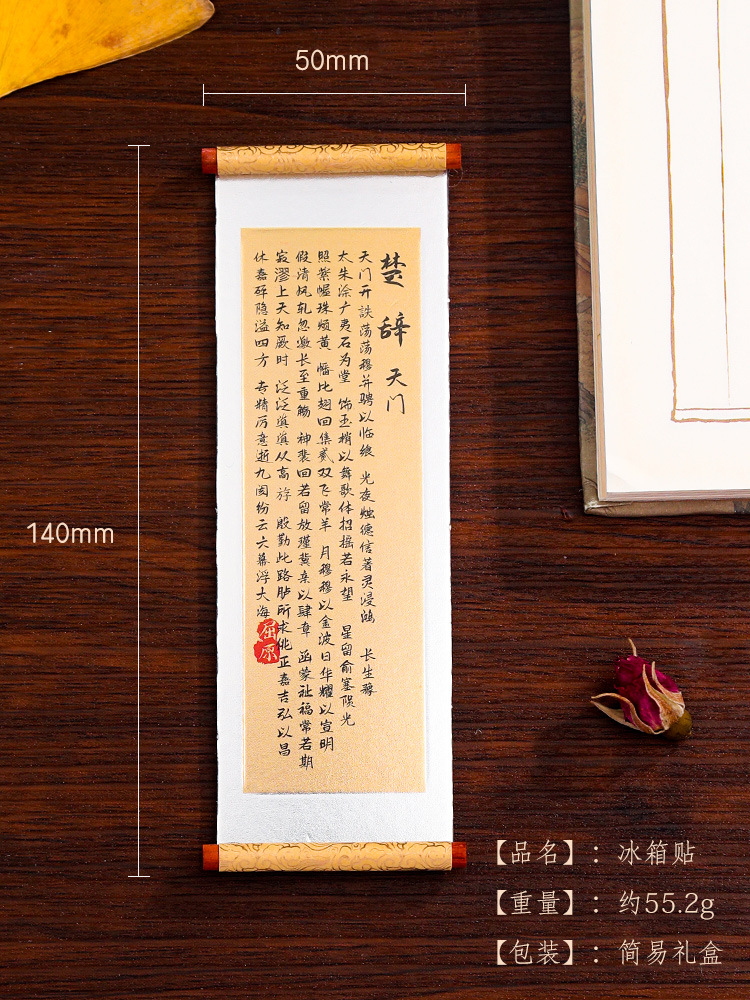 50mm
140mm
楚辞 天门
天门开 詄荡荡穆并骋以临飨 光夜烛德信著灵浸鸿 长生豫
太朱涂广夷石为堂 饰玉梢以舞歌体招摇若永望 星留俞塞陨光
照紫幄珠烦黄 幡比翅回集贰双飞常羊 月穆穆以金波日华耀以宣明
假清风轧忽激长至重觞 神裴回若留放瑾冀亲以肆章 函蒙祉福常若期
寂漻上天知厥时 泛泛滇滇从高斿 殷勤此路胪所求佻正嘉吉弘以昌
休嘉砰隐溢四方 专精厉意逝九阂纷云六幕浮大海
屈原
【品名】：冰箱贴
【重量】：约55.2g
【包装】：简易礼盒